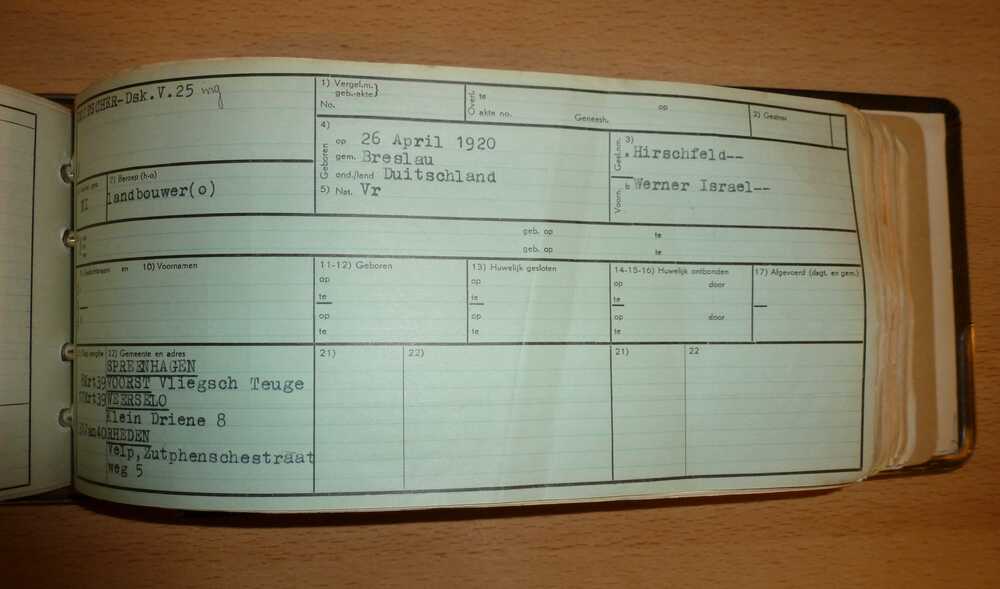 TSCHER-Dsk.V.25
1) Vergel.m.
geb.-akte}
No.
Overl. te op
akte no. Geneesh.
2) Gezins
4)
Geboren
op 26 April 1920
gem. Breslau
ond./land Duitschland
5) Nat. Vr
3)
Gesl.nm.
a Hirschfeld--
Voorn. b Werner Israel--
7) Beroep (h-o)
landbouwer(o)
geb. op te
geb. op te
en 10) Voornamen
11-12) Geboren
op
te
op
te
13) Huwelijk gesloten
op
te
op
te
14-15-16) Huwelijk ontbonden
op door
te
op door
te
17) Afgevoerd (dagt. en gem.)
22) Gemeente en adres
21)
22)
21)
22
SPREENHAGEN
Mrt39 VOORST Vliegsch Teuge
Mrt39 WEERSELO
Klein Driene 8
Jan40 RHEDEN
Velp,Zutphenschestraat
weg 5